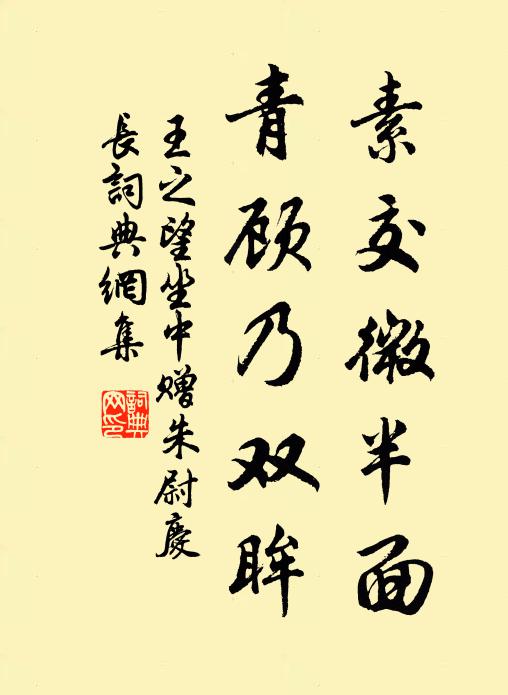 素交微半面
青顾乃双眸
王之望坐中赠朱尉慶
長詞典網集
詞典
网印